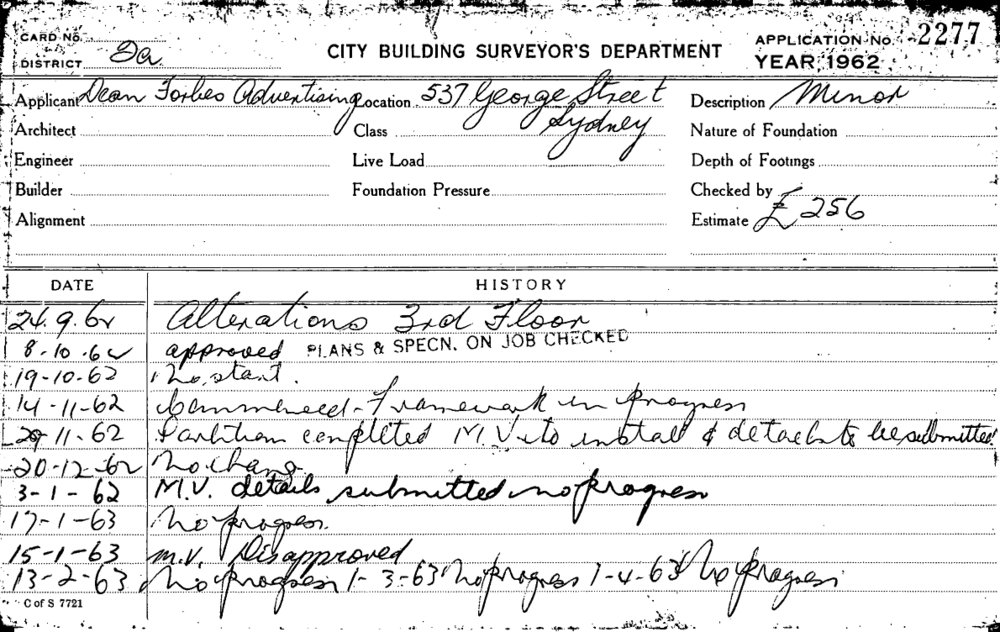 CARD No.
DISTRICT Da
CITY BUILDING SURVEYOR'S DEPARTMENT
APPLICATION No. 2277
YEAR, 1962
Applicant Dean Forbes Advertising Location 537 George Street Description Minor
Sydney
Architect Class Nature of Foundation
Engineer Live Load Depth of Footings
Builder Foundation Pressure Checked by
Alignment Estimate £256
DATE HISTORY
24.9.62 Alterations 3rd Floor
8-10.62 approved PLANS & SPECN. ON JOB CHECKED
19-10-62 No start.
14-11-62 Commenced - Framework in progress
29 11-62 Partition completed M.V. to install & details to be submitted
20-12-62 No change
3-1-62 M.V. details submitted no progress
17-1-63 No progress.
15-1-63 M.V. Disapproved
13-2-63 No progress 1-3-63 No progress 1-4-63 No progress
C of S 7721